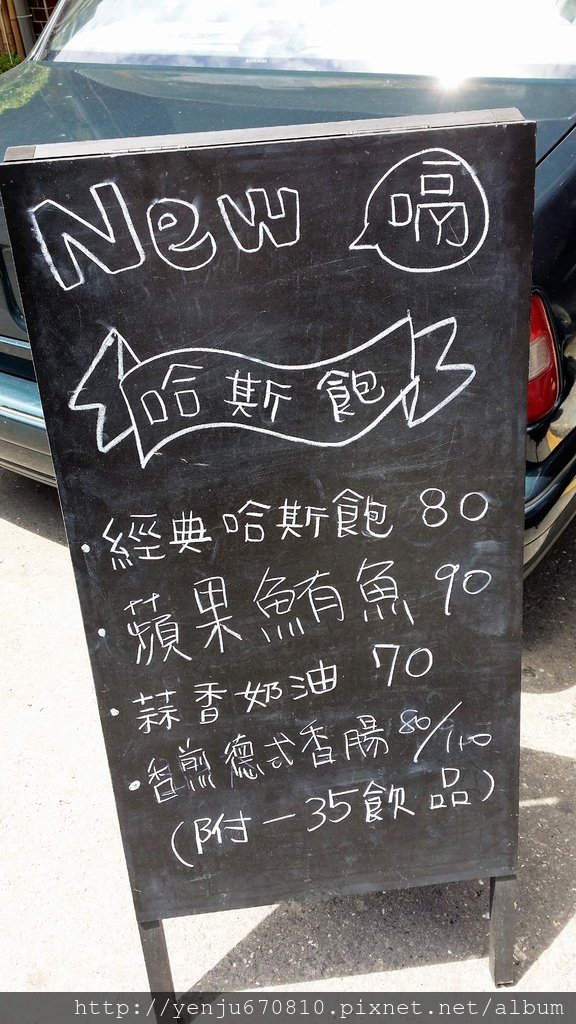 New 嗝
哈斯飽
·經典哈斯飽 80
·蘋果鮪魚 90
·蒜香奶油 70
·香煎德式香腸 80/110
(附一35飲品)
http://yenju670810.pixnet.net/album